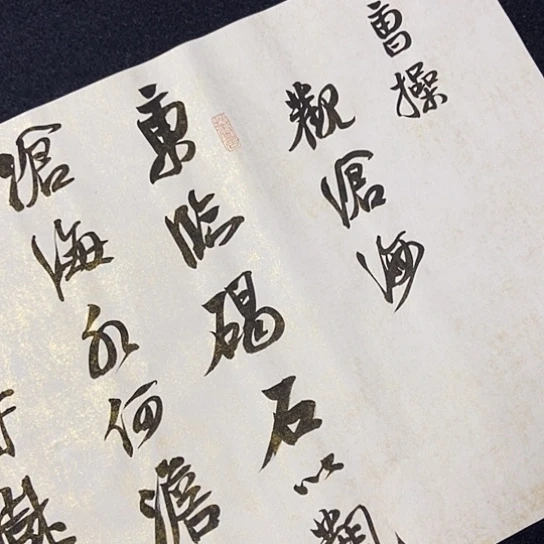 曹操
觀滄海
東臨碣石以觀
滄海水何澹